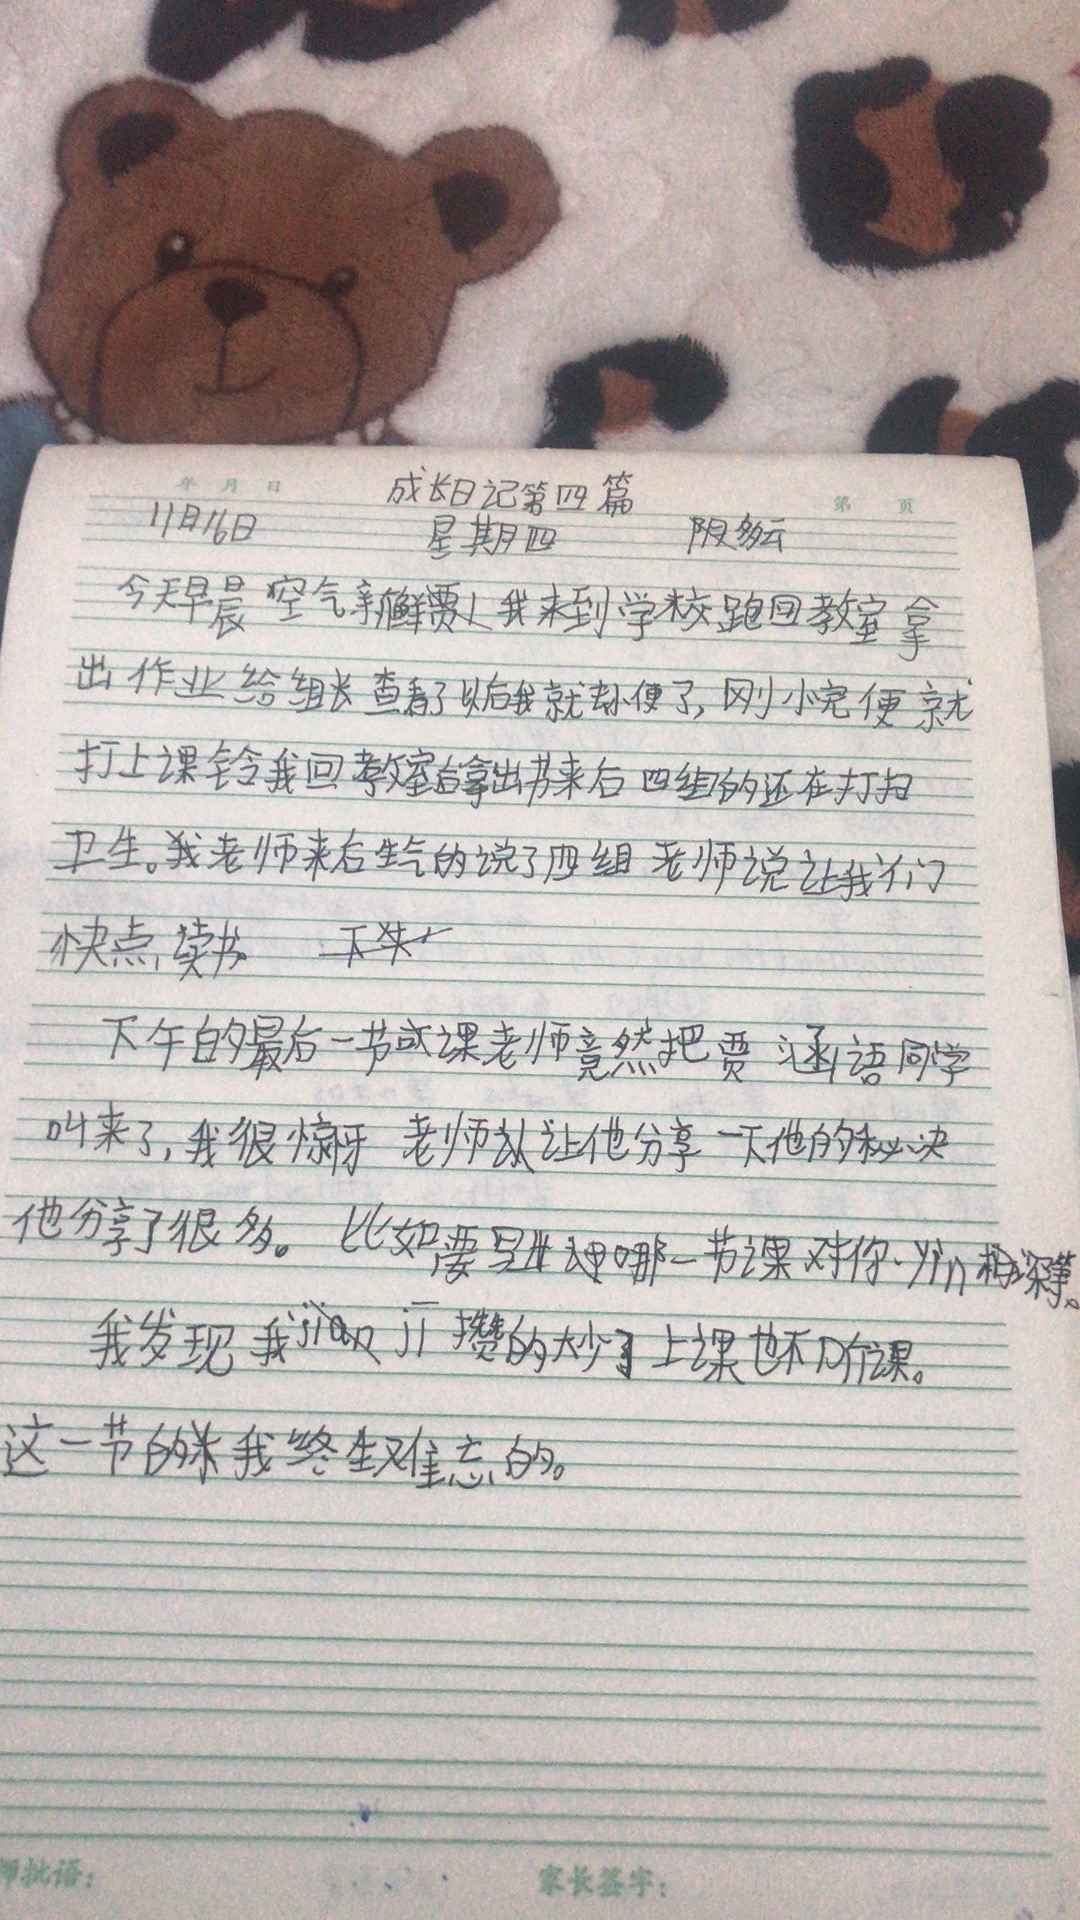 年 月 日
成长日记第四篇
第 页
11月16日 星期四 阴多云
今天早晨 空气新鲜 我来到学校跑回教室拿
出作业给组长查看了以后我就去小便了,刚小完便就
打上课铃我回教室后拿出书来后四组的还在打扫
卫生。我老师来后生气的说了四组 老师说让我们
快点读书
下午的最后一节 课老师竟然把贾涵语同学
叫来了,我很惊呀 老师 让他分享一下他的秘决
他分享了很多。比如要写 哪一节课对你yìn相深第。
我发现我jiān jī攒的太少了上课也不听课。
这一节的 我终生难忘的。
师批语:
家长签字: